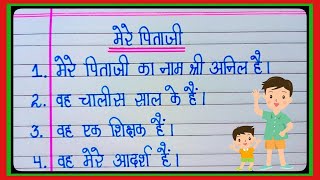 मेरे पिताजी
1. मेरे पिताजी का नाम श्री अनिल है।
2. वह चालीस साल के हैं।
3. वह एक शिक्षक हैं।
4. वह मेरे आदर्श हैं।